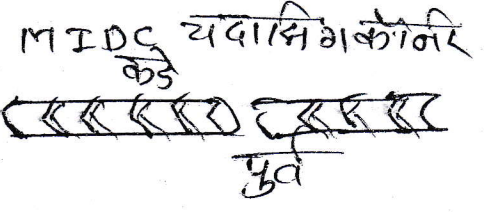 MIDC यदासिगकॉर्नर
कडे
पुर्व